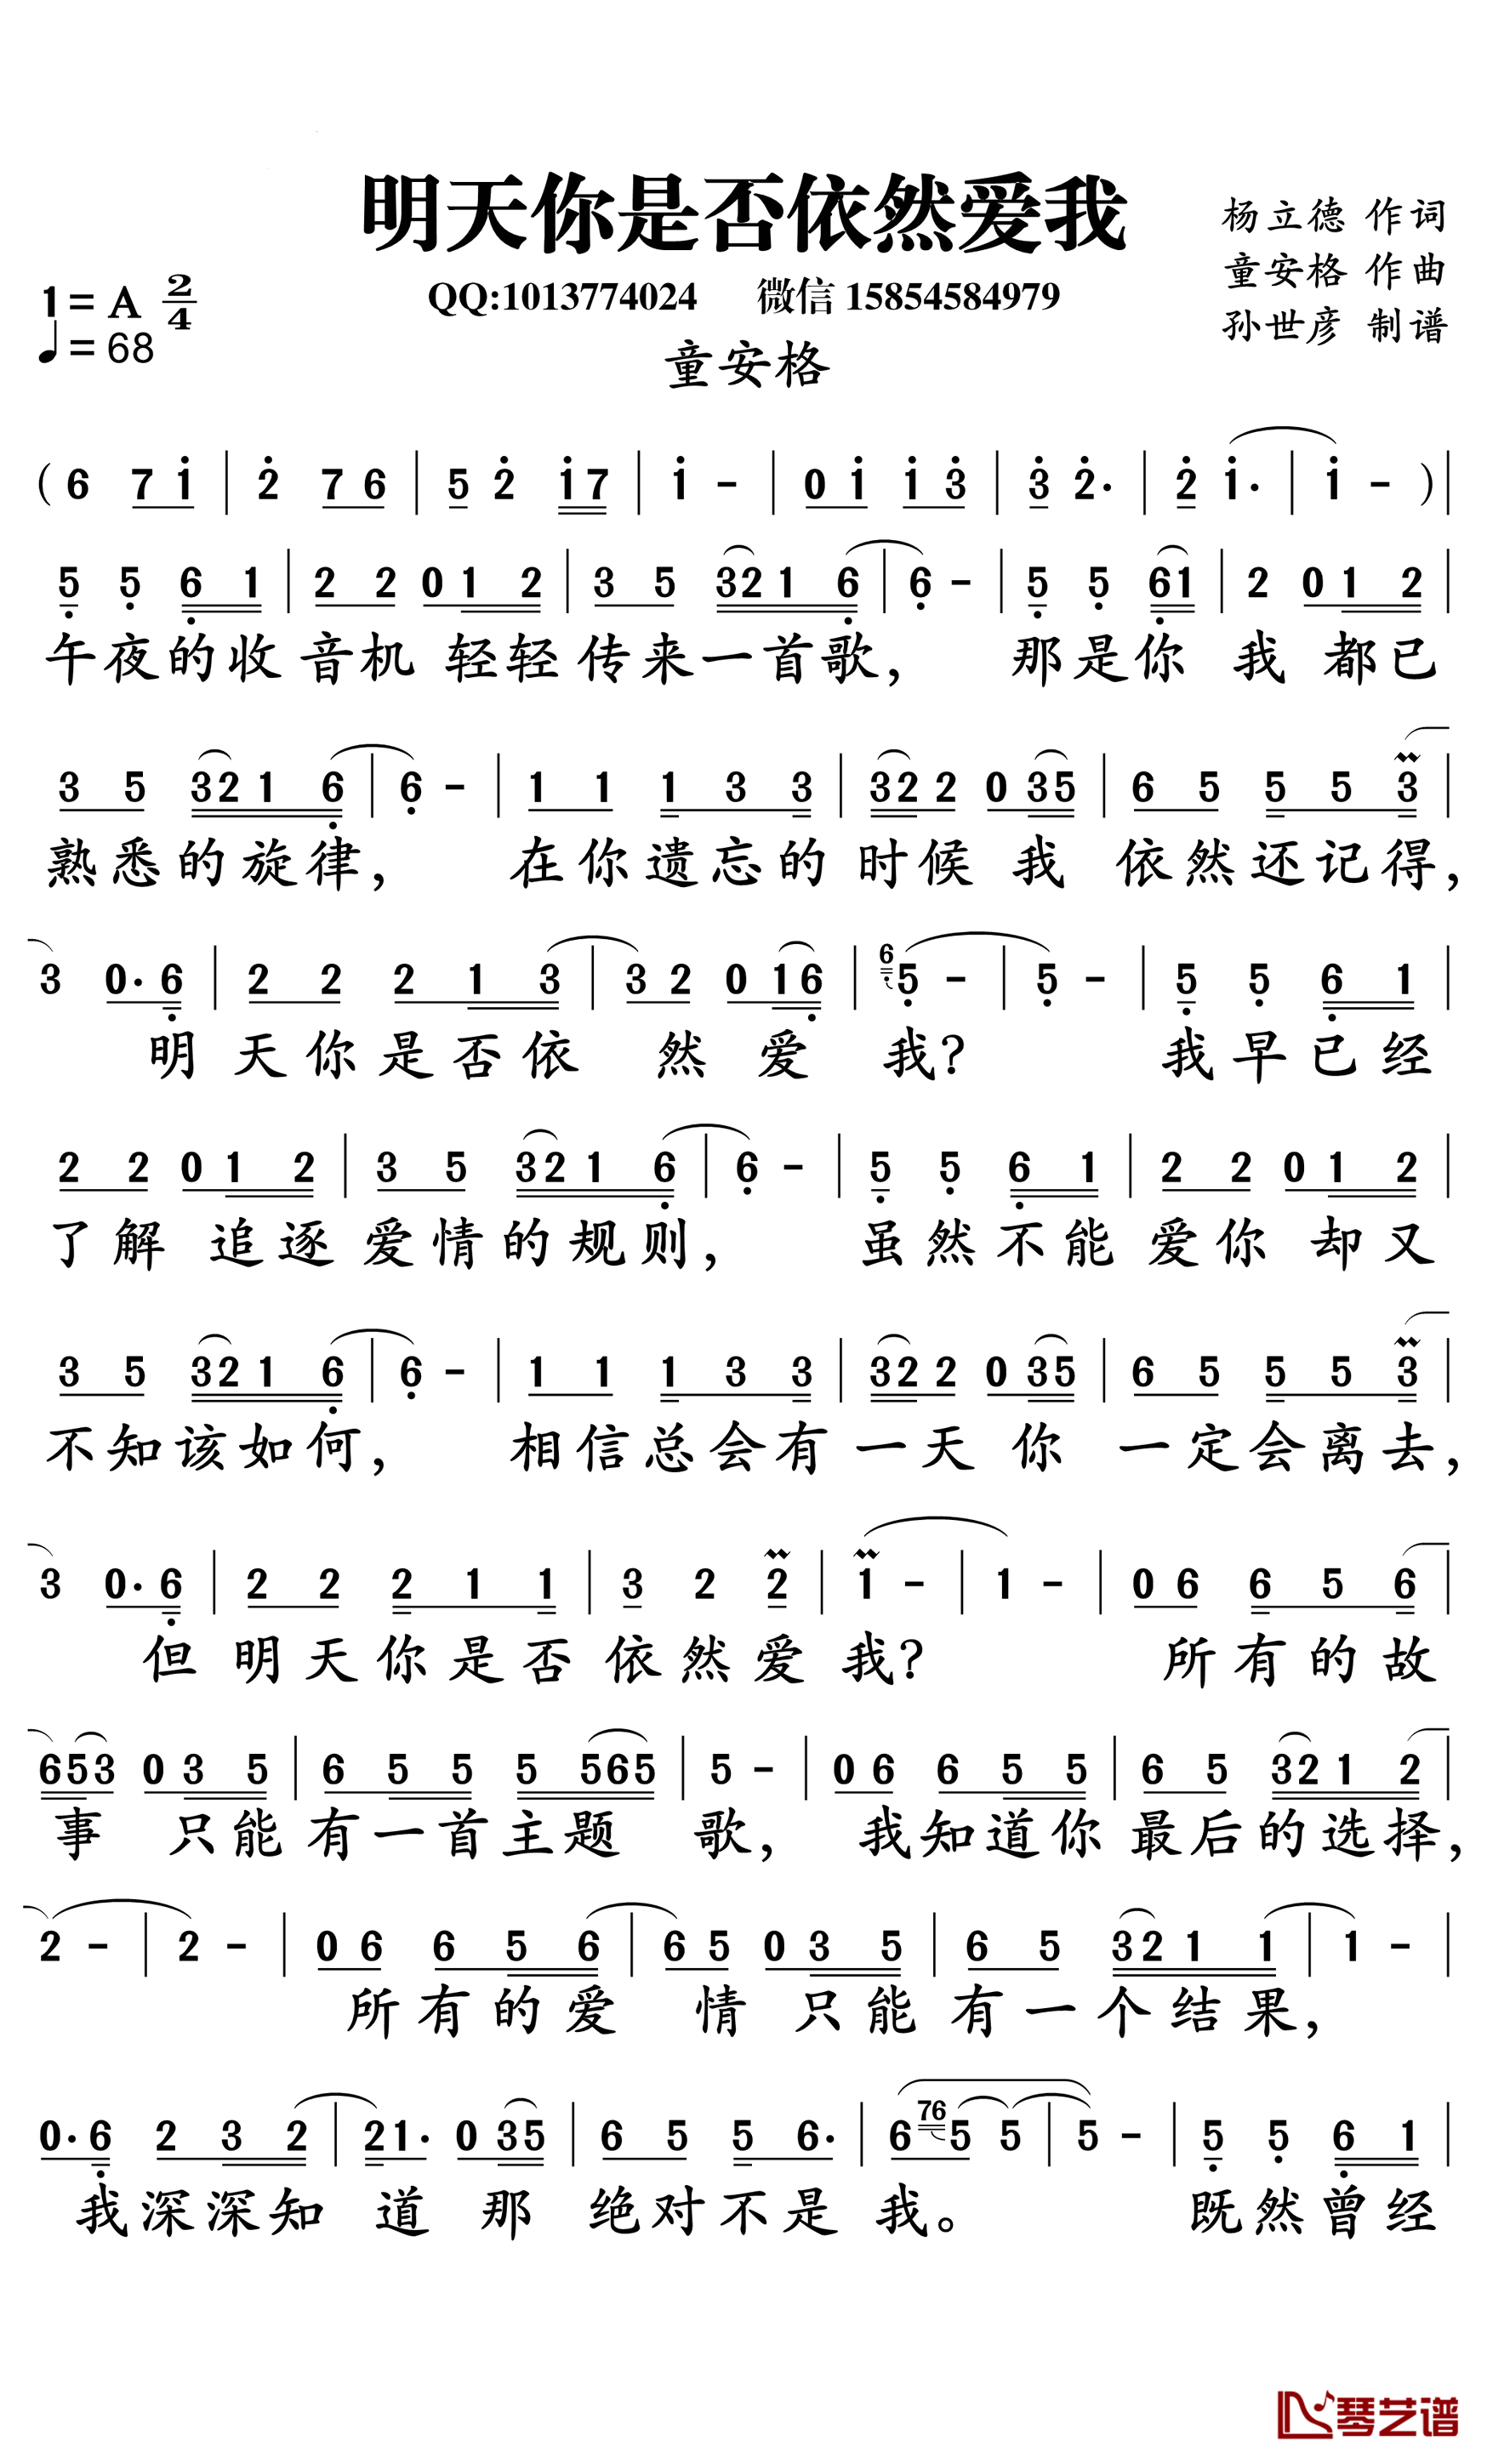 明天你是否依然爱我
杨立德 作词
童安格 作曲
孙世彦 制谱
1=A 2/4
♩=68
QQ:1013774024 微信 15854584979
童安格
( 6 7 1̇ | 2̇ 7 6 | 5 2̇ 1̇7 | 1̇ - | 0 1̇ 1̇ 3̇ | 3̇ 2̇· | 2̇ 1̇· | 1̇ - ) |
5̣ 5̣ 6̣ 1 | 2 2 0 1 2 | 3 5 32 1 6̣ | 6̣ - | 5̣ 5̣ 6̣1 | 2 0 1 2 |
午夜的收 音机 轻轻 传来一首歌， 那是你 我 都已
3 5 32 1 6̣ | 6̣ - | 1 1 1 3 3 | 32 2 0 35 | 6 5 5 5 3 |
熟悉的旋律， 在你遗忘的 时候 我 依然还记得，
3 0· 6̣ | 2 2 2 1 3 | 3 2 0 16̣ | 6̣5̣ - | 5̣ - | 5̣ 5̣ 6̣ 1 |
明 天你是否依 然 爱 我? 我早已经
2 2 0 1 2 | 3 5 32 1 6̣ | 6̣ - | 5̣ 5̣ 6̣ 1 | 2 2 0 1 2 |
了解 追逐 爱情的规则， 虽然不能 爱你 却又
3 5 32 1 6̣ | 6̣ - | 1 1 1 3 3 | 32 2 0 35 | 6 5 5 5 3 |
不知该如何， 相信总会有 一天 你 一定会离去，
3 0· 6̣ | 2 2 2 1 1 | 3 2 2 | 1 - | 1 - | 0 6 6 5 6 |
但 明天你是否 依然爱 我? 所有的故
653 0 3 5 | 6 5 5 5 565 | 5 - | 0 6 6 5 5 | 6 5 32 1 2 |
事 只能 有一首主题 歌， 我知道你 最后的选择，
2 - | 2 - | 0 6 6 5 6 | 6 5 0 3 5 | 6 5 32 1 1 | 1 - |
所有的爱 情 只能 有一个结果，
0· 6̣ 2 3 2 | 21· 0 35 | 6 5 5 6· | 6 765 5 | 5 - | 5̣ 5̣ 6̣ 1 |
我深深知 道 那 绝对不是 我。 既然曾经
琴艺谱